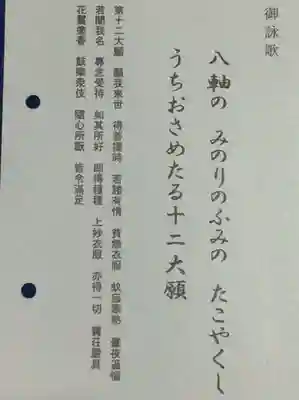 御詠歌
八軸の みのりのふみの たこやくし
うちおさめたる十二大願
第十二大願 願我来世 得菩提時 若諸有情 貧無衣服 蚊虻寒熱 晝夜逼惱
若聞我名 專念受持 如其所好 即得種種 上妙衣服 亦得一切 寶莊嚴具
花鬘塗香 鼓樂衆伎 隨心所翫 皆令滿足